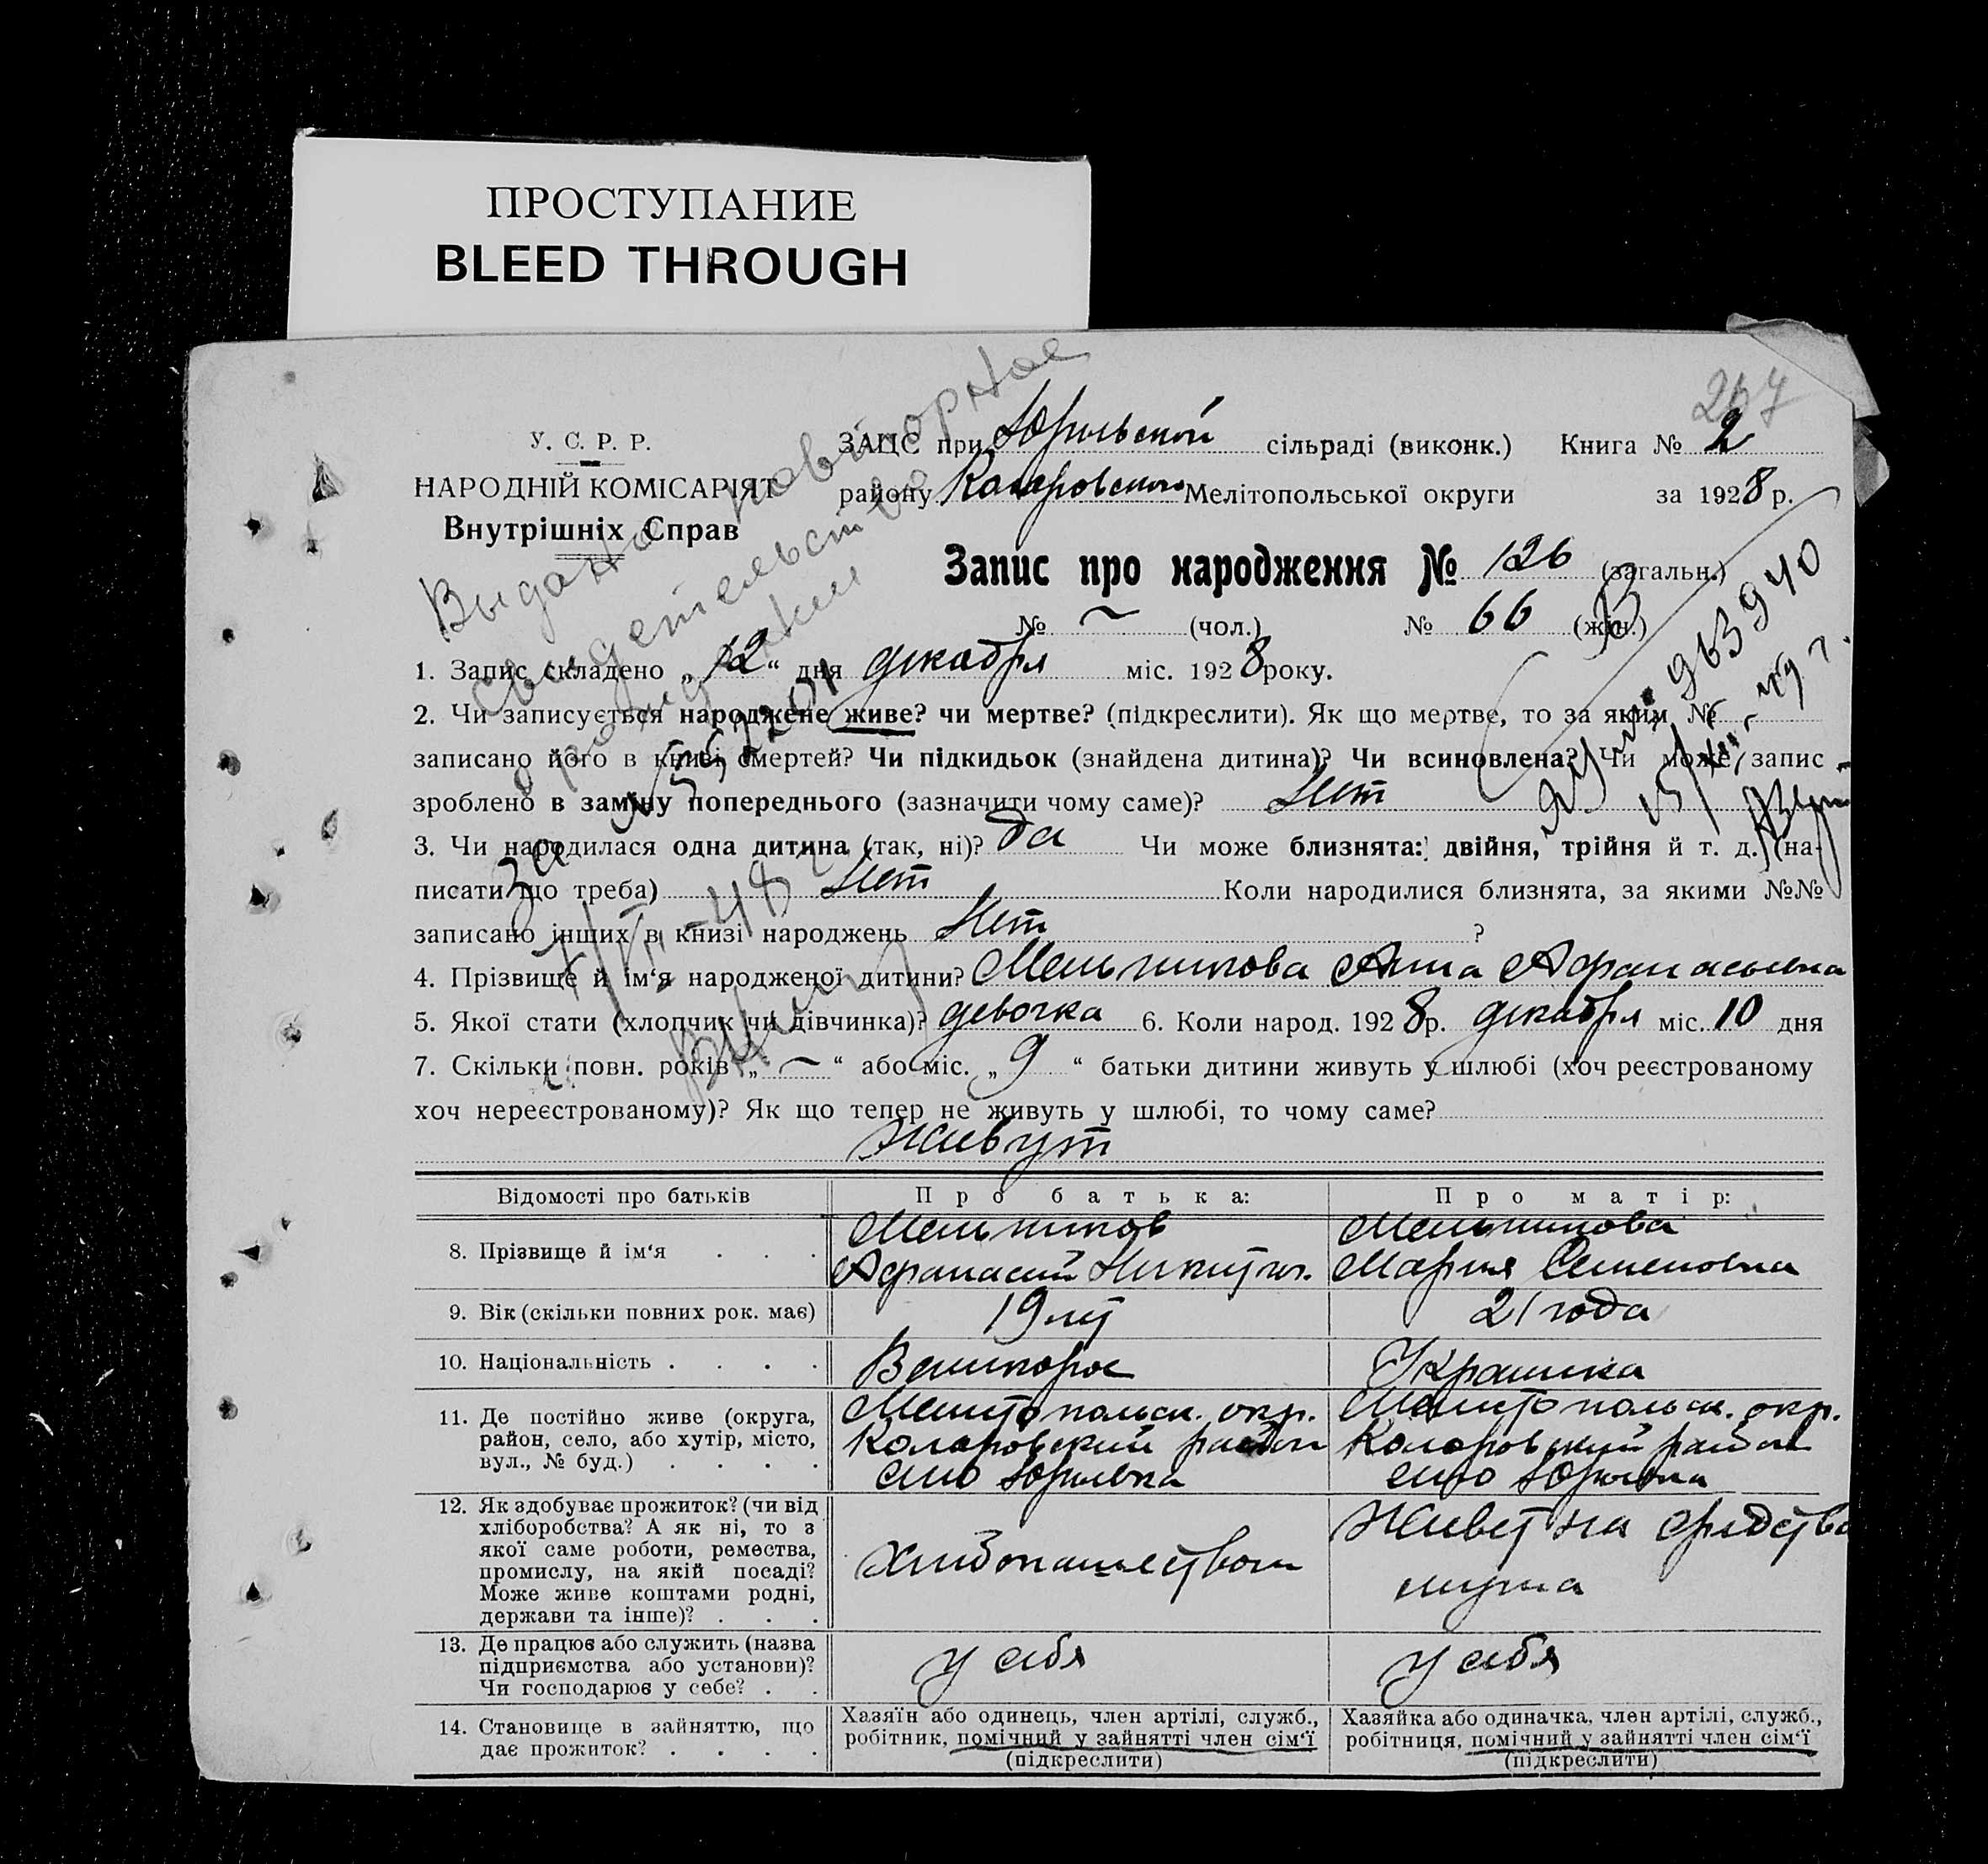 ПРОСТУПАНИЕ
BLEED THROUGH
267
У. С. Р. Р.
НАРОДНІЙ КОМІСАРІЯТ
Внутрішніх Справ
ЗАЦС при Юрьевской сільраді (виконк.) Книга № 2
району Коларовского Мелітопольської округи за 1928 р.
Запис про народження № 126 (загальн.)
№ ~ (чол.) № 66 (жін.)
Выдано повторное
свидетельство
о рождении
за № 557201
7/VII-48 г.
963940
1. Запис складено „12“ дня декабря міс. 1928 року.
2. Чи записується народжене живе? чи мертве? (підкреслити). Як що мертве, то за яким №
записано його в книзі смертей? Чи підкидьок (знайдена дитина)? Чи всиновлена? Чи може запис
зроблено в заміну попереднього (зазначити чому саме)? Нет
3. Чи народилася одна дитина (так, ні)? да Чи може близнята: двійня, трійня й т. д. (на-
писати що треба) Нет Коли народилися близнята, за якими №№
записано інших в книзі народжень Нет ?
4. Прізвище й ім‘я народженої дитини? Мельникова Анна Афанасьевна
5. Якої стати (хлопчик чи дівчинка)? девочка 6. Коли народ. 1928 р. декабря міс. 10 дня
7. Скільки повн. років „~“ або міс. „9“ батьки дитини живуть у шлюбі (хоч реєстрованому
хоч нереєстрованому)? Як що тепер не живуть у шлюбі, то чому саме?
Живут
Відомості про батьків
Про батька:
Про матір:
8. Прізвище й ім‘я . . .
Мельников
Афанасий Никитич.
Мельникова
Мария Семеновна
9. Вік (скільки повних рок. має)
19 лет
21 года
10. Національність . . . .
Великорос
Украинка
11. Де постійно живе (округа,
район, село, або хутір, місто,
вул., № буд.) . . . .
Мелитопольск. окр.
Коларовский район
село Юрьевка
Мелитопольск. окр.
Коларовский район
село Юрьевка
12. Як здобуває прожиток? (чи від
хліборобства? А як ні, то з
якої саме роботи, ремества,
промислу, на якій посаді?
Може живе коштами родні,
держави та інше)? . . .
Хлебопашеством
Живет на средства
мужа
13. Де працює або служить (назва
підприємства або установи)?
Чи господарює у себе? . .
у себя
у себя
14. Становище в зайняттю, що
дає прожиток? . . . .
Хазяїн або одинець, член артілі, служб.,
робітник, помічний у зайнятті член сім‘ї
(підкреслити)
Хазяйка або одиначка, член артілі, служб.,
робітниця, помічний у зайнятті член сім‘ї
(підкреслити)